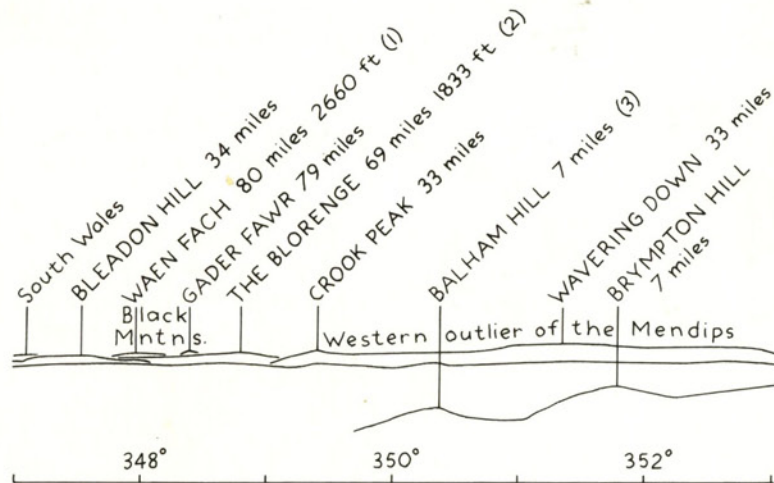 South Wales
BLEADON HILL 34 miles
WAEN FACH 80 miles 2660 ft (1)
GADER FAWR 79 miles
THE BLORENGE 69 miles 1833 ft (2)
CROOK PEAK 33 miles
BALHAM HILL 7 miles (3)
WAVERING DOWN 33 miles
BRYMPTON HILL
7 miles
Black
Mntns.
Western outlier of the Mendips
348° 350° 352°